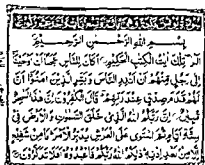 بسم الله الرحمن الرحيم
الر تلك ايت الكتب الحكيم اكان للناس عجبا ان اوحينا
الى رجل منهم ان انذر الناس وبشر الذين امنوا ان
لهم قدم صدق عند ربهم قال الكفرون ان هذا لسحر
مبين ان ربكم الله الذي خلق السموت والارض في
ستة ايام ثم استوى على العرش يدبر الامر ما من شفيع
الا من بعد اذنه ذلكم الله ربكم فاعبدوه افلا تذكرون